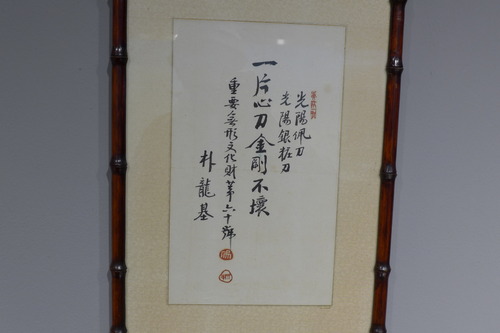 光陽佩刀
光陽銀粧刀
一片心刀金剛不壞
重要無形文化財第六十號
朴龍基